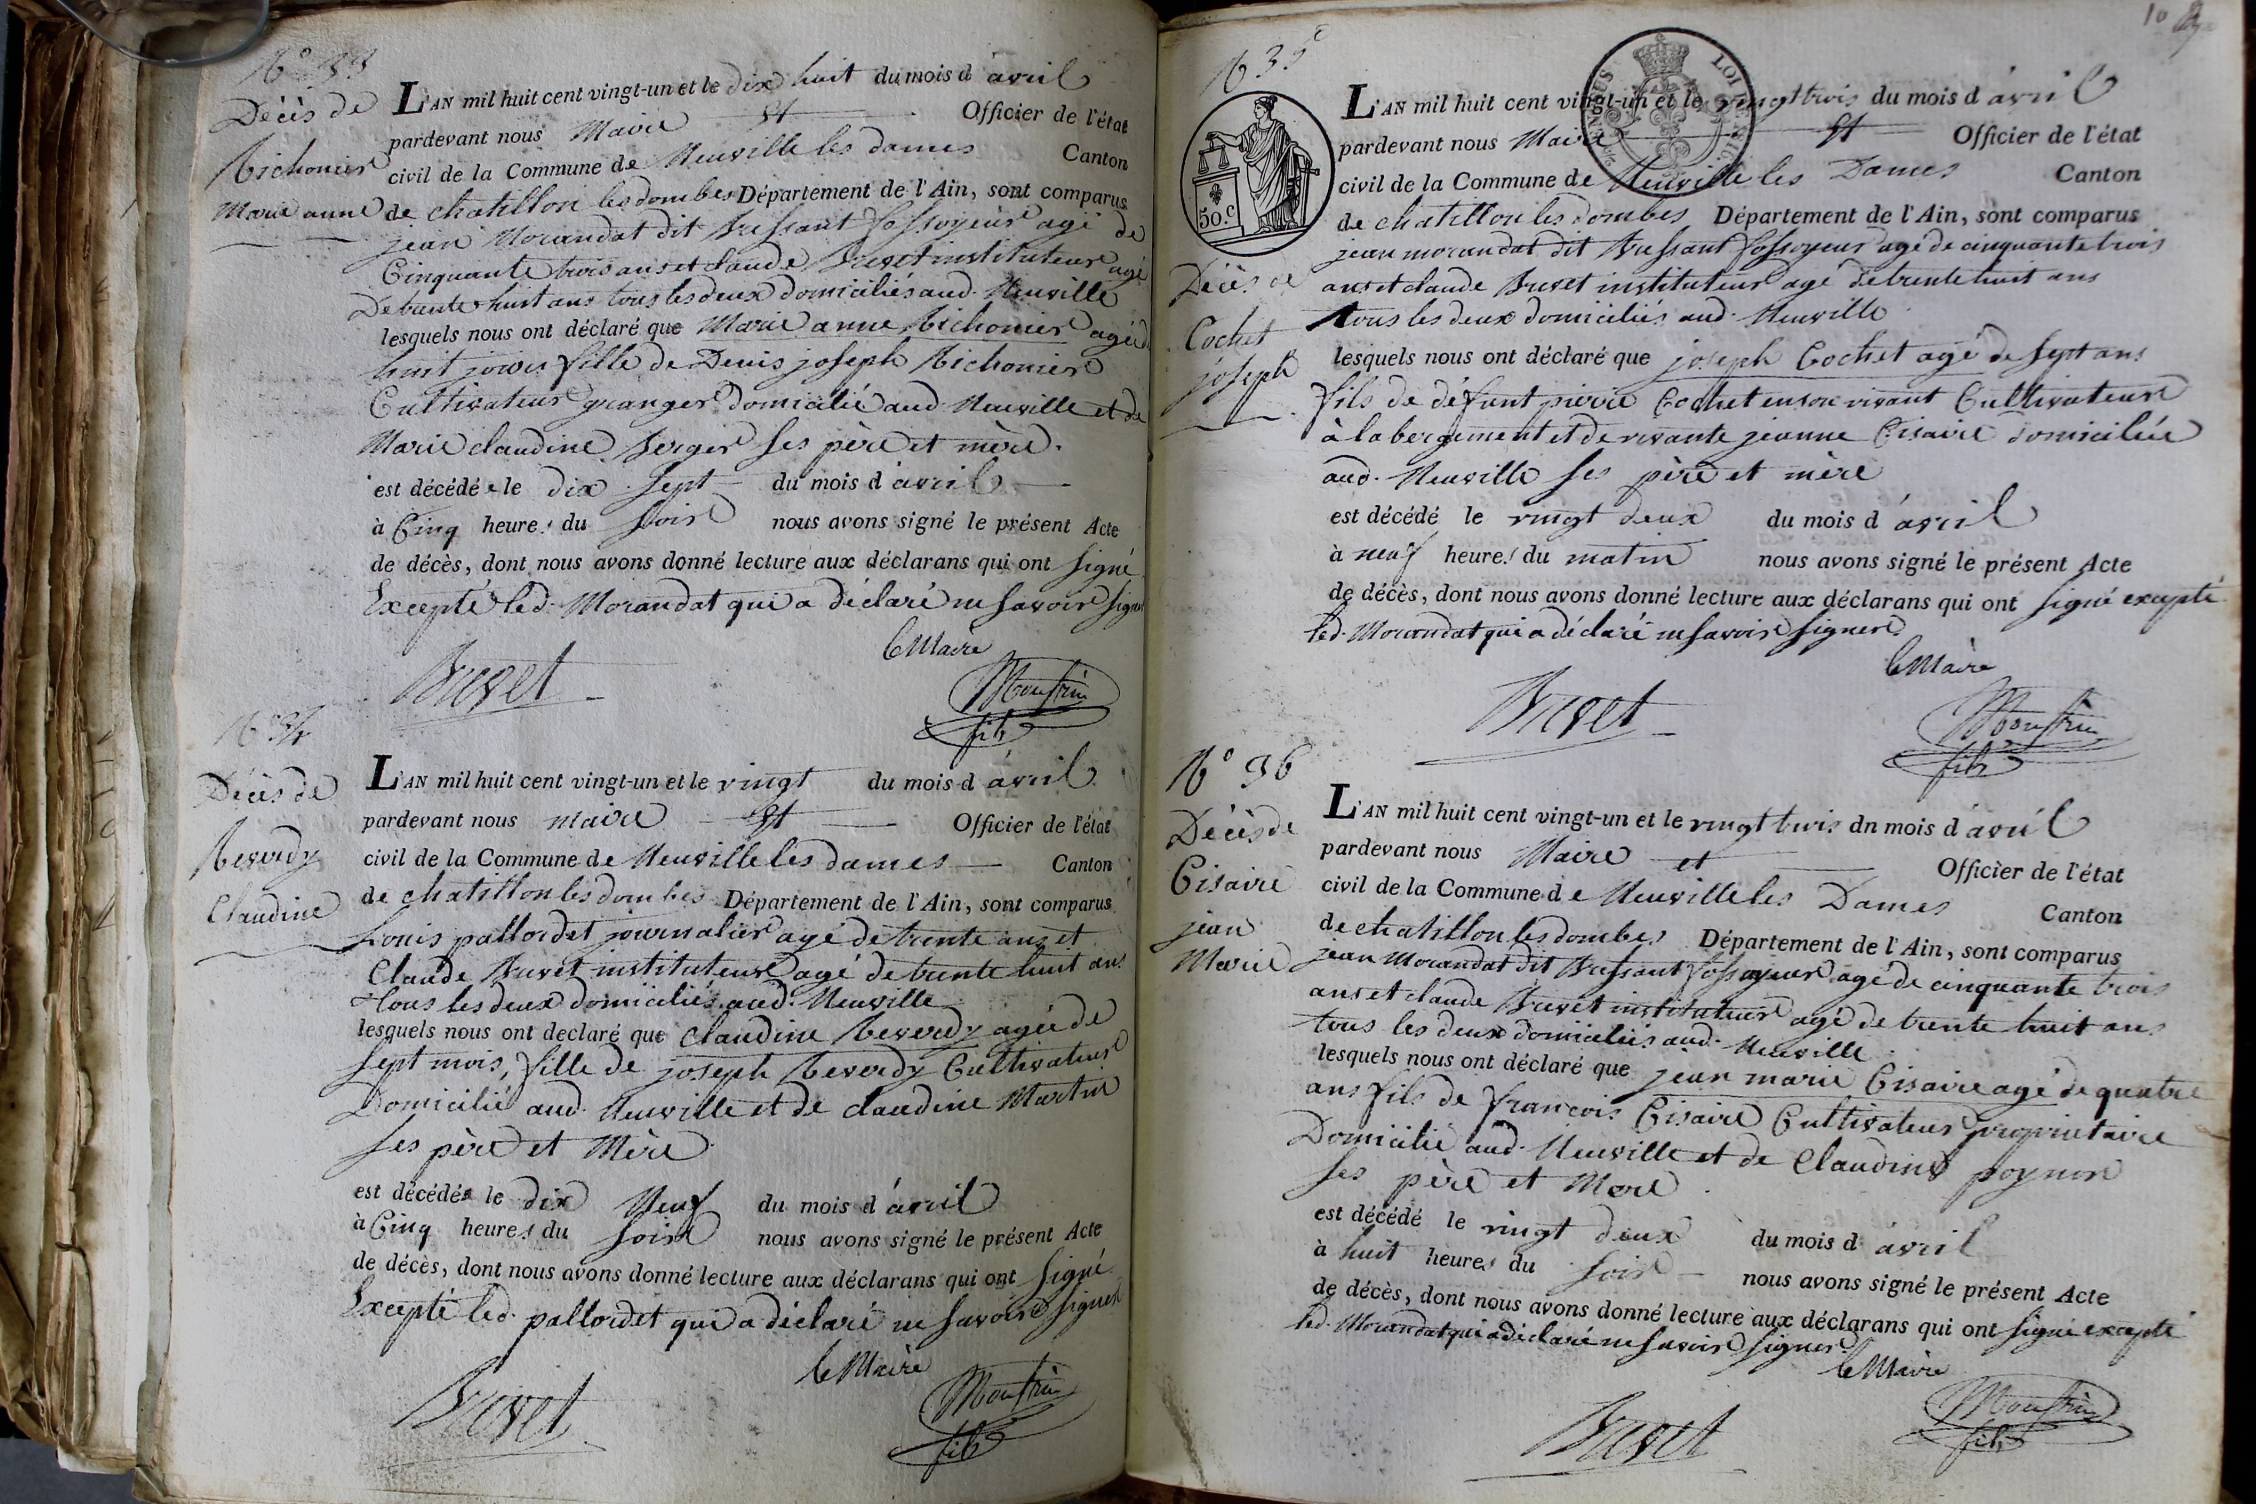 N° 33
Décès de
Richonier
Marie anne
L'AN mil huit cent vingt-un et le dix huit du mois d avril
pardevant nous Maire et Officier de l'état
civil de la Commune de Neuville les dames Canton
de chatillon les dombes Département de l'Ain, sont comparus
jean Morandat dit Bressant fossoyeur agé de
Cinquante trois ans et claude Buvet instituteur agé
De trente huit ans tous les deux domiciliés aud. Neuville
lesquels nous ont déclaré que Marie anne Richonier agée de
huit jours fille de Denis joseph Richonier
Cultivateur granger domicilié aud Neuville et de
Marie claudine Berger ses père et mère.
est décédée le dix sept du mois d'avril
à Cinq heures du soir nous avons signé le présent Acte
de décès, dont nous avons donné lecture aux déclarans qui ont signé
Excepté led. Morandat qui a déclaré ne savoir signer
le Maire
Buvet
Monfrin
fils
N° 34
Décès de
Reverdy
Claudine
L'AN mil huit cent vingt-un et le vingt du mois d avril
pardevant nous maire et Officier de l'état
civil de la Commune de Neuville les dames Canton
de chatillon les dombes Département de l'Ain, sont comparus
Louis pallordet journalier agé de trente ans et
Claude Buvet instituteur agé de trente huit ans
tous les deux domiciliés aud. Neuville
lesquels nous ont declaré que claudine Reverdy agée de
sept mois, fille de joseph Reverdy Cultivateur
Domicilié aud. Neuville et de claudine Martin
ses père et Mère
est décédée le dix Neuf du mois d'avril
à Cinq heures du soir nous avons signé le présent Acte
de décès, dont nous avons donné lecture aux déclarans qui ont signé
Excepté led. pallordet qui a déclaré ne savoir signer
le Maire
Buvet
Monfrin
fils
10
N 35
50.C
LOI DE
Décès de
Cochet
joseph
L'AN mil huit cent vingt-un et le vingt trois du mois d avril
pardevant nous Maire et Officier de l'état
civil de la Commune de Neuville les Dames Canton
de chatillon les dombes Département de l'Ain, sont comparus
jean morandat dit Bressant fossoyeur agé de cinquante trois
ans et claude Buvet instituteur agé de trente huit ans
tous les deux domiciliés aud. Neuville
lesquels nous ont déclaré que joseph Cochet agé de sept ans
fils de défunt pierre Cochet encore vivant Cultivateur
à labergement et de vivante jeanne Cisaire domiciliée
aud. Neuville ses père et mère
est décédé le vingt deux du mois d'avril
à neuf heures du matin nous avons signé le présent Acte
de décès, dont nous avons donné lecture aux déclarans qui ont signé excepté
led. Morandat qui a déclaré ne savoir signer
le Maire
Buvet
Monfrin
fils
N° 36
Décès de
Cisaire
jean
Marie
L'AN mil huit cent vingt-un et le vingt trois dn mois d'avril
pardevant nous Maire et Officier de l'état
civil de la Commune de Neuville les Dames Canton
de chatillon les dombes Département de l'Ain, sont comparus
jean Morandat dit Bressant fossoyeur agé de cinquante trois
ans et claude Buvet instituteur agé de trente huit ans
tous les deux domiciliés aud. Neuville
lesquels nous ont déclaré que jean marie Cisaire agé de quatre
ans fils de françois Cisaire Cultivateur proprietaire
Domicilié aud. Neuville et de Claudine poynon
ses père et Mere
est décédé le vingt deux du mois d avril
à huit heures du soir nous avons signé le présent Acte
de décès, dont nous avons donné lecture aux déclarans qui ont signé excepté
led. Morandat qui a déclaré ne savoir signer
le Maire
Buvet
Monfrin
fils